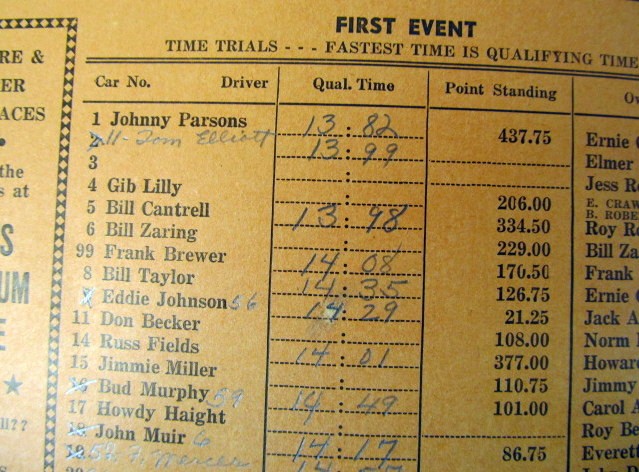 FIRST EVENT
TIME TRIALS - - - FASTEST TIME IS QUALIFYING TIME
RE &
ER
ACES
the
s at
S
UM
E
ll??
Car No. Driver Qual. Time Point Standing
1 Johnny Parsons 13:82 437.75 Ernie
2 11-Tom Elliott 13:99 Elmer
3 Jess
4 Gib Lilly 206.00 E. CRAW
B. ROBE
5 Bill Cantrell 13:98 334.50 Roy
6 Bill Zaring 229.00 Bill Za
99 Frank Brewer 14:08 170.50 Frank
8 Bill Taylor 14:35 126.75 Ernie
Eddie Johnson 56 14:29 21.25 Jack A
11 Don Becker 108.00 Norm
14 Russ Fields 14:01 377.00 Howar
15 Jimmie Miller 110.75 Jimmy
16 Bud Murphy 59 14:49 101.00 Carol A
17 Howdy Haight Roy Be
18 John Muir 6 14:17 86.75 Everett